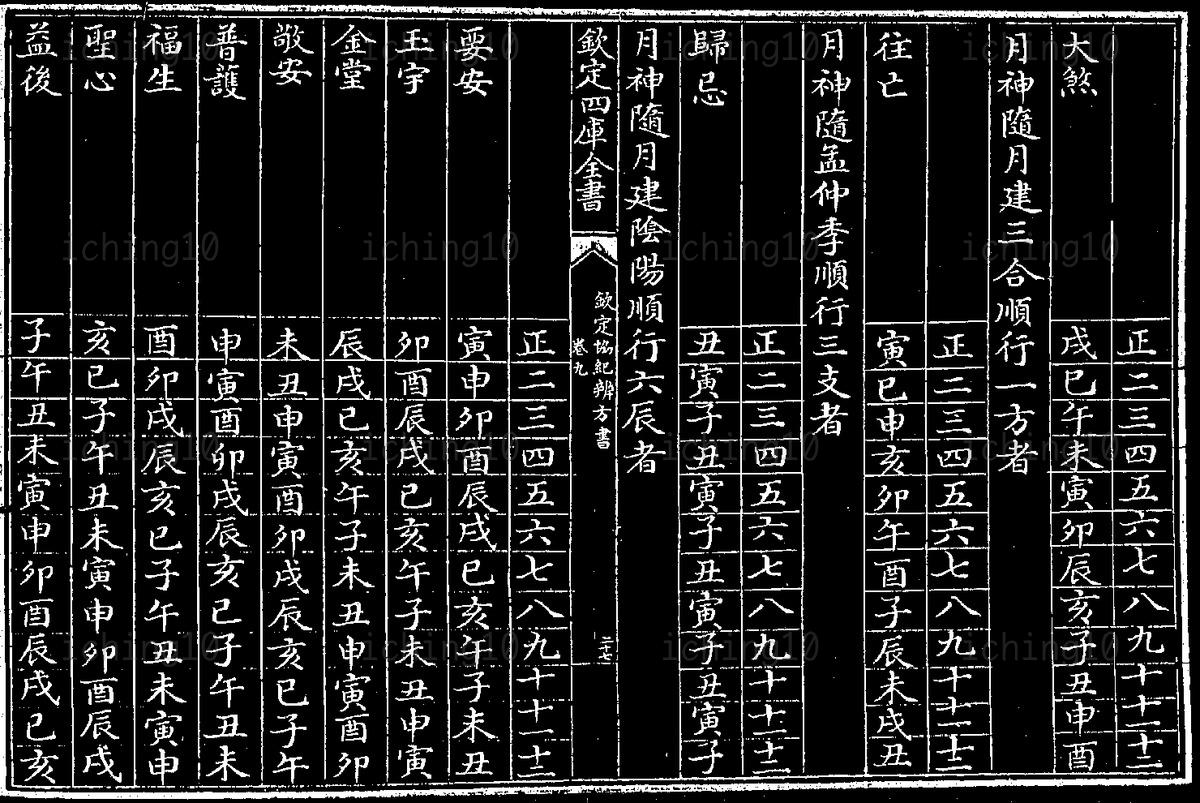 正二三四五六七八九十十一十二
大煞 戌巳午未寅卯辰亥子丑申酉
月神隨月建三合順行一方者
正二三四五六七八九十十一十二
往亡 寅巳申亥卯午酉子辰未戌丑
月神隨孟仲季順行三支者
正二三四五六七八九十十一十二
歸忌 丑寅子丑寅子丑寅子丑寅子
月神隨月建陰陽順行六辰者
欽定四庫全書 欽定協紀辨方書
卷九 二十七
正二三四五六七八九十十一十二
要安 寅申卯酉辰戌巳亥午子未丑
玉宇 卯酉辰戌巳亥午子未丑申寅
金堂 辰戌巳亥午子未丑申寅酉卯
敬安 未丑申寅酉卯戌辰亥巳子午
普護 申寅酉卯戌辰亥巳子午丑未
福生 酉卯戌辰亥巳子午丑未寅申
聖心 亥巳子午丑未寅申卯酉辰戌
益後 子午丑未寅申卯酉辰戌巳亥
iching10